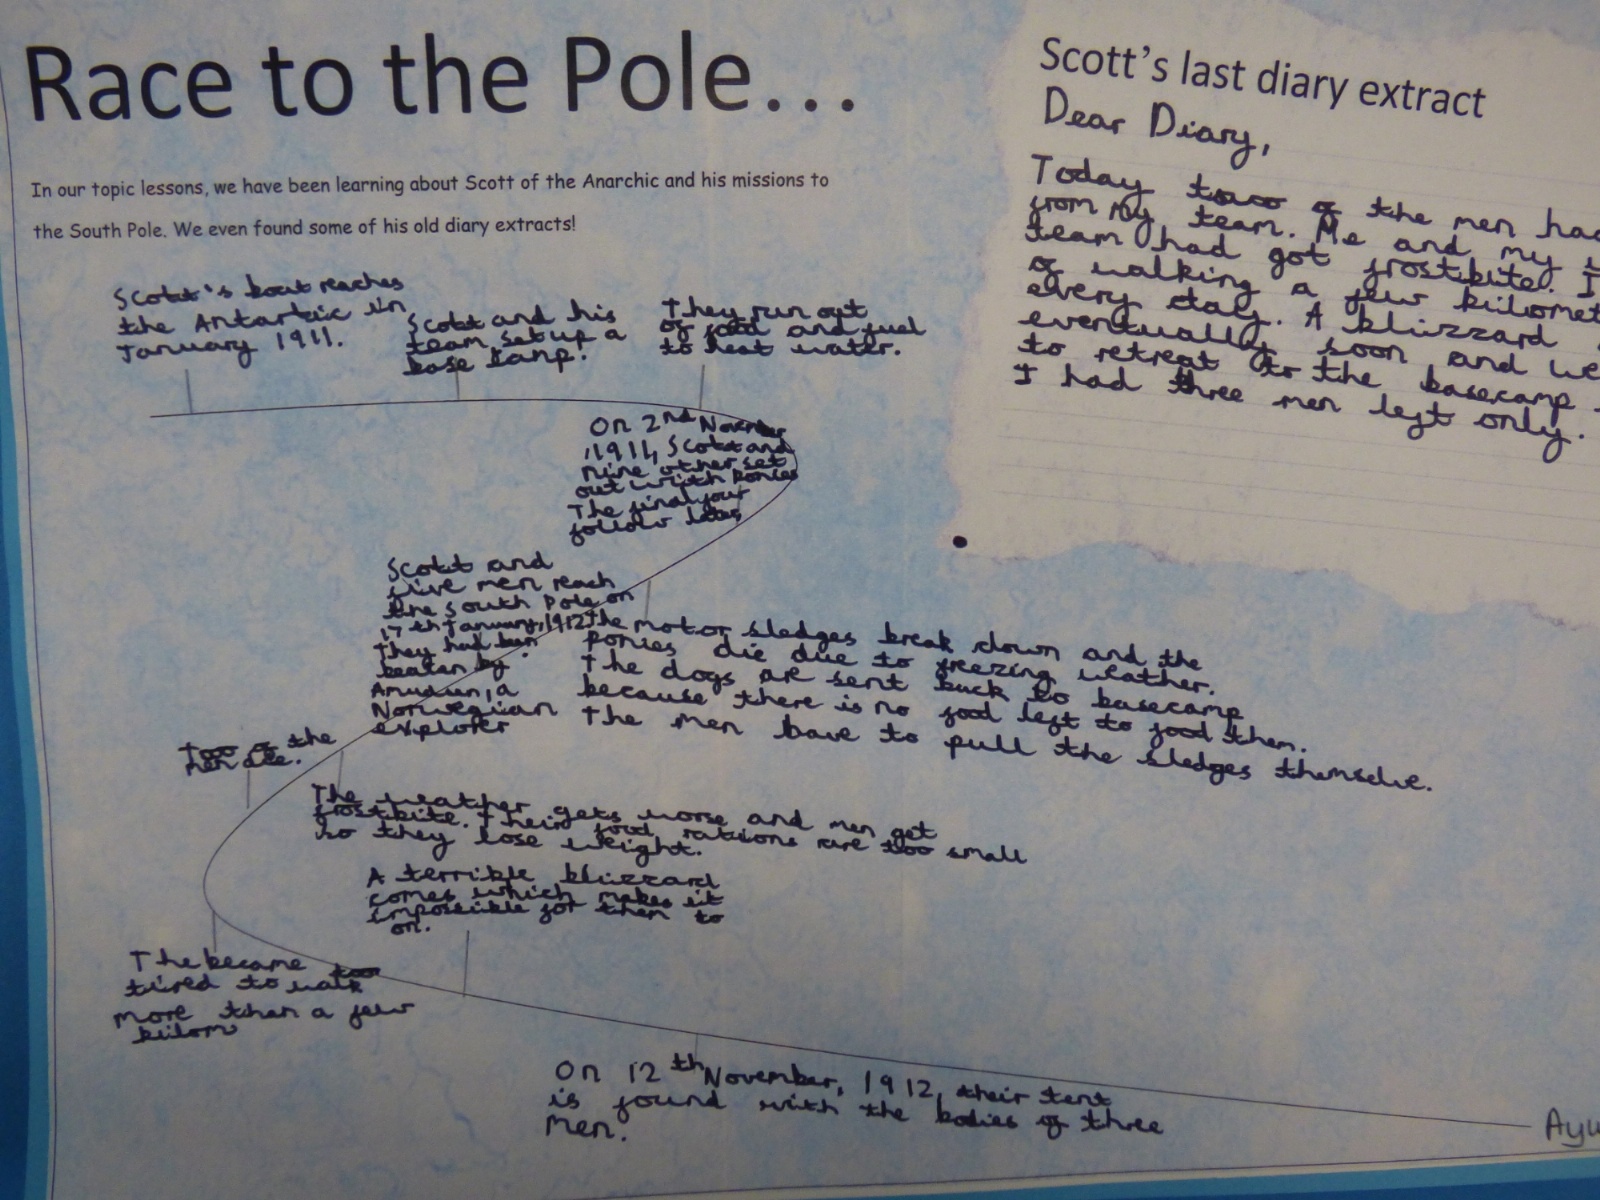 Race to the Pole...
In our topic lessons, we have been learning about Scott of the Anarchic and his missions to
the South Pole. We even found some of his old diary extracts!
Scott's boat reaches
the Antartic in
January 1911.
Scott and his
team set up a
base camp.
They run out
of food and fuel
to heat water.
On 2nd November
1911, Scott and
nine other set
out with ponies
The final four
follow later
Scott and
five men reach
the South Pole on
17th January, 1912.
They had been
beaten by
a
Norwegian
explorer
the motor sledges break down and the
ponies die due to freezing weather.
The dogs are sent back to basecamp
because there is no food left to food them.
The men have to pull the sledges themselve.
Too of the
men die.
The weather gets worse and men get
frostbite. Their food rations are too small
so they lose weight.
A terrible blizzard
comes which makes it
impossible for them to
on.
The became too
tired to walk
more than a few
kilom
On 12th November, 1912, their tent
is found with the bodies of three
men.
Scott's last diary extract
Dear Diary,
Today of the men had
from my team. Me and my
team had got frostbite. I
of walking a few kilomet
every day. A blizzard
eventually soon and we
to retreat to the basecamp
I had three men left only.